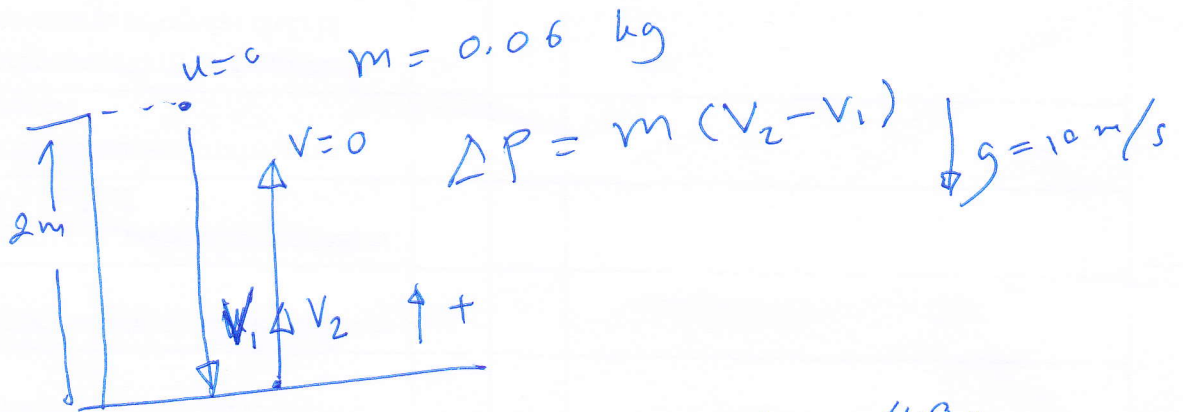 u=0 m = 0.06 kg
V=0 ΔP = m (V₂-V₁) g=10 m/s
2m
V₁ V₂ +